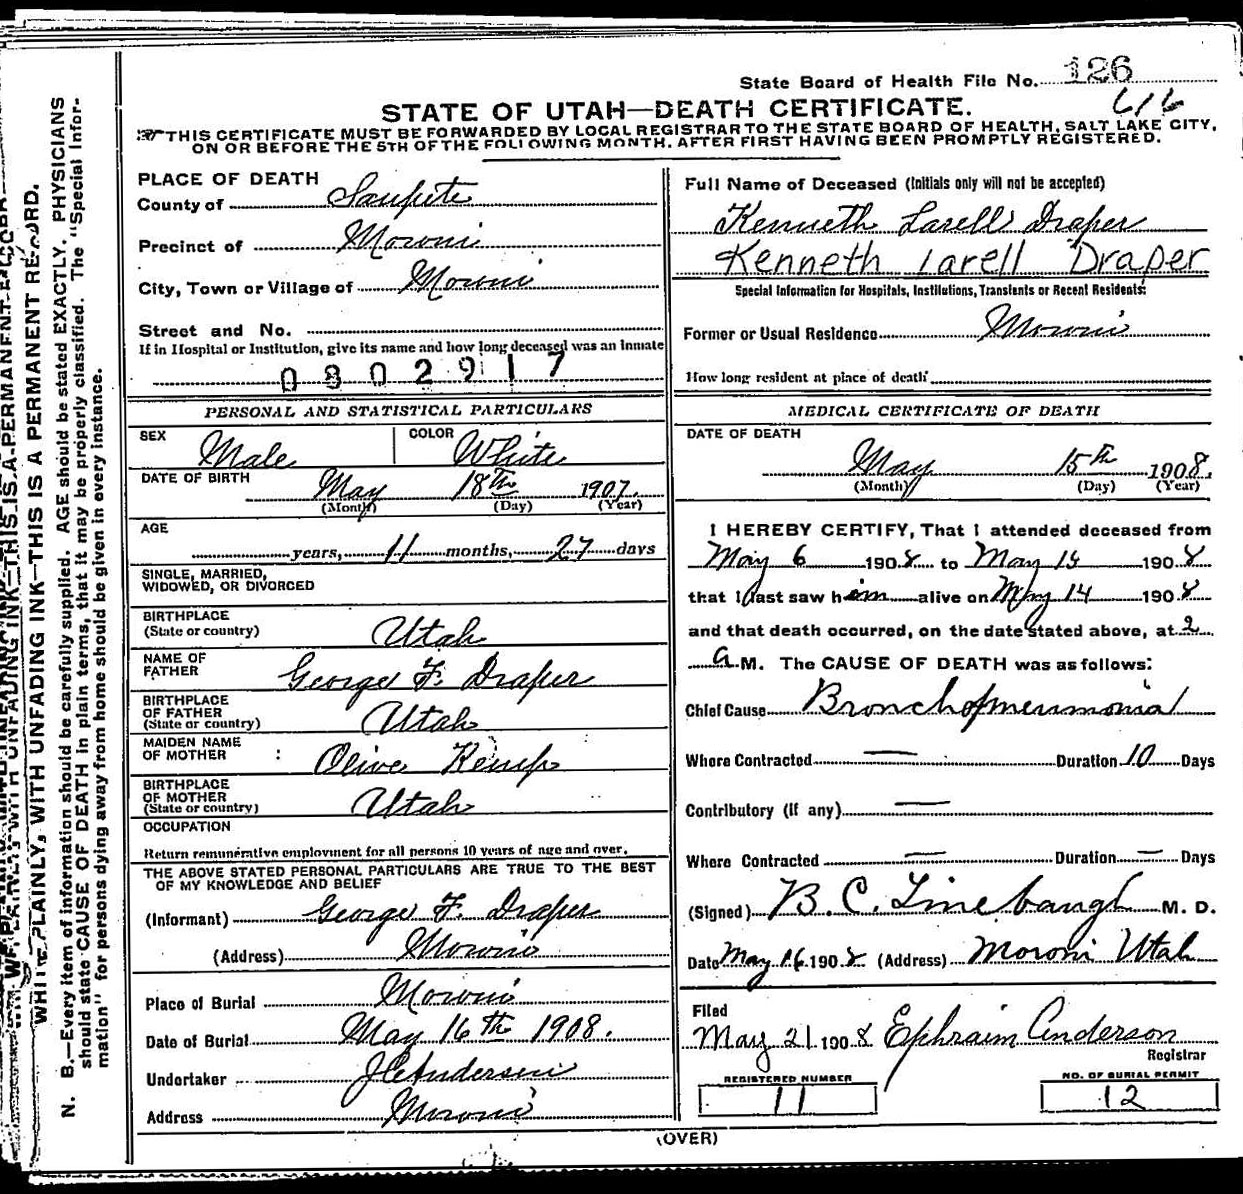 State Board of Health File No. 126
616
STATE OF UTAH—DEATH CERTIFICATE.
THIS CERTIFICATE MUST BE FORWARDED BY LOCAL REGISTRAR TO THE STATE BOARD OF HEALTH, SALT LAKE CITY,
ON OR BEFORE THE 5TH OF THE FOLLOWING MONTH, AFTER FIRST HAVING BEEN PROMPTLY REGISTERED.
PLACE OF DEATH
County of Sanpete
Precinct of Moroni
City, Town or Village of Moroni
Street and No.
If in Hospital or Institution, give its name and how long deceased was an inmate
0302917
PERSONAL AND STATISTICAL PARTICULARS
SEX Male COLOR White
DATE OF BIRTH May 18th 1907.
(Month) (Day) (Year)
AGE
years, 11 months, 27 days
SINGLE, MARRIED,
WIDOWED, OR DIVORCED
BIRTHPLACE
(State or country) Utah
NAME OF
FATHER George F. Draper
BIRTHPLACE
OF FATHER
(State or country) Utah
MAIDEN NAME
OF MOTHER : Olive Kemp
BIRTHPLACE
OF MOTHER
(State or country) Utah
OCCUPATION
Return remunerative employment for all persons 10 years of age and over.
THE ABOVE STATED PERSONAL PARTICULARS ARE TRUE TO THE BEST
OF MY KNOWLEDGE AND BELIEF
(Informant) George F. Draper
(Address) Moroni
Place of Burial Moroni
Date of Burial May 16th 1908.
Undertaker J C Andersen
Address Moroni
Full Name of Deceased (Initials only will not be accepted)
Kenneth Larell Draper
Kenneth Larell Draper
Special Information for Hospitals, Institutions, Transients or Recent Residents:
Former or Usual Residence Moroni
How long resident at place of death
MEDICAL CERTIFICATE OF DEATH
DATE OF DEATH
May 15th 1908.
(Month) (Day) (Year)
I HEREBY CERTIFY, That I attended deceased from
May 6 1908 to May 14 1908
that I last saw him alive on May 14 1908
and that death occurred, on the date stated above, at 2
a.M. The CAUSE OF DEATH was as follows:
Chief Cause Bronchopneumonia
Where Contracted — Duration 10 Days
Contributory (if any) —
Where Contracted — Duration — Days
(Signed) B. C. Linebaugh M. D.
Date May 16 1908 (Address) Moroni Utah
Filed
May 21 1908 Ephraim Anderson
Registrar
REGISTERED NUMBER
11
NO. OF BURIAL PERMIT
12
(OVER)
WRITE PLAINLY, WITH UNFADING INK—THIS IS A PERMANENT RECORD.
N. B.—Every item of information should be carefully supplied. AGE should be stated EXACTLY. PHYSICIANS
should state CAUSE OF DEATH in plain terms, that it may be properly classified. The "Special Infor-
mation" for persons dying away from home should be given in every instance.